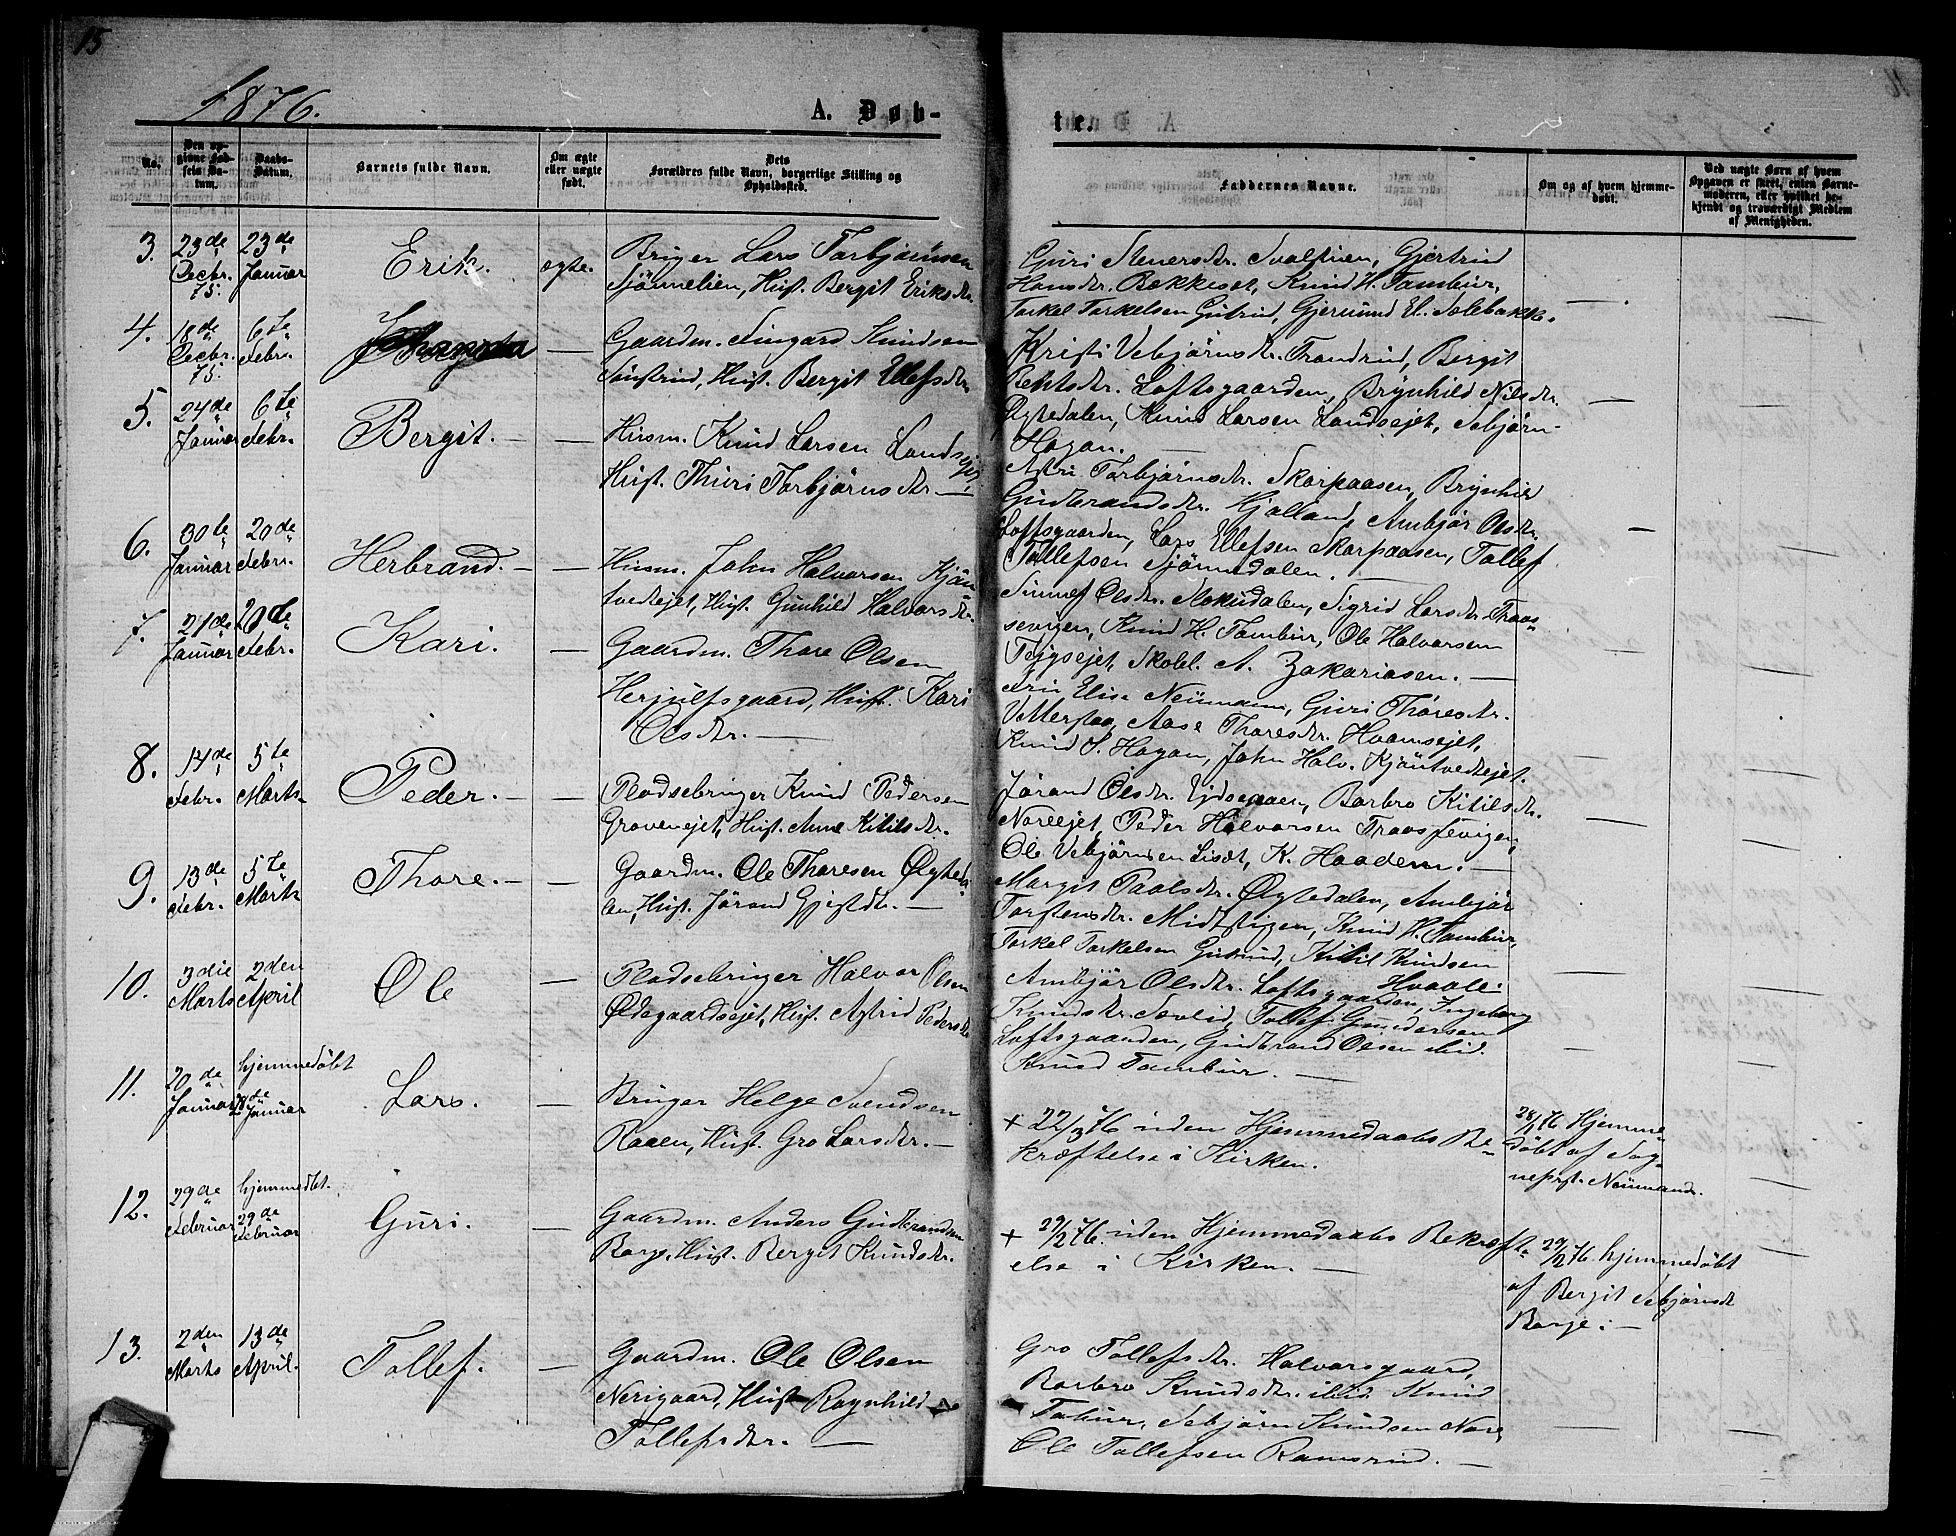 15
16
1876.
A. Døb-
te.
No.
Den op-
givne Fød-
sels Da-
tum.
Daabs-
Datum.
Barnets fulde Navn.
Om ægte
eller uægte
født.
Dets
Forældres fulde Navn, borgerlige Stilling og
Opholdssted.
Faddernes Navne.
Om og af hvem hjemme-
døbt.
Ved uægte Børn af hvem
Opgaven er skeet, enten Barne-
moderen, eller hvilket be-
kjendt og troværdigt Medlem
af Menigheden.
3. 23de Decbr. 75. 23de Januar Erik. ægte.
Bruger Lars Torbjørnsen
Sjönnelien, Hust. Bergit Eriksdr.
Guri Steversdr. Gjertrud
Hansdr. Bekkeset, Knud H. Tambur,
Torkel Torkelsen Gutrud, Gjermund El. Solebakke.
4. 18de Decbr. 75. 6te Febr. —
Gaardm. Knudsen
Hust. Bergit Ellefsdr.
Kristi Vebjörnsdr. Trondrud, Bergit
Loftsgaarden, Brynhild Nilsdr.
Øygtedalen, Knud Larsen Landsejet, Sebjörn
Hagan. —
5. 24de Januar 6te Febr. Bergit. — —
Husm. Knud Larsen Landsejet,
Hust. Thuri Torbjörnsdr. —
Astri Torbjörnsdr. Skarpaasen, Brynhild
Gudbrandsdr. Kjolland, Ambjör Olsdr.
Loftsgaarden, Lars Ellefsen Skarpaasen, Tollef
Tollefsen Sjönnedalen. —
6. 30te Januar 20de Febr. Herbrand. — —
Husm. John Halvorsen Kjön
tvedtejet, Hust. Gunhild Halvorsdr.
Sunnef Olsdr. Sigrid Larsdr. Traas-
sevigen, Knud H. Tambur, Ole Halvorsen
Skobl. A. Zakariasen. —
7. 21de Januar 20de Febr. Kari. —
Gaardm. Thore Olsen
Herjulfsgaard, Hust. Kari
Olsdr. —
Fru Elise Neumann, Guri Thoresdr.
Aase Thoresdr. Hvamsejet,
Knud S. Hagan, John Halv. Kjöntvedtejet.
8. 14de Febr. 5te Marts Peder. — —
Pladsebruger Knud Pedersen
Grovenejet, Hust. Anne Kitilsdr.
Jörand Olsdr. Barbro Kitilsdr.
Noreejet, Peder Halvorsen Traasfevigen,
Ole Vebjörnsen K. Haadem. —
9. 13de Febr. 5te Marts Thore. — —
Gaardm. Ole Thoresen Øygteda
len, Hust. Jörand —
Margit Paalsdr. Øygtedalen, Ambjör
Torstensdr. Midtstigen, Knud H. Tambur,
Torkel Torkelsen Kitil Knudsen
Hvaale.
10. 3die Marts 2den April Ole —
Pladsebruger Halvor Olsen
Ødegaardsejet, Hust. Astrid Pedersdr.
Ambjör Olsdr. Loftsgaarden, Ingeborg
Knudsdr. Sevlid, Tollef Gundersen
Loftsgaarden, Gudbrand Olsen ibid.
Knud Tambur. —
11. 20de Januar hjemmedöbt 28de Januar Lars. —
Bruger Helge Svendsen
Raaen, Hust. Gro Larsdr. —
+ 22/3 76 uden Hjemmedaabs Be-
kræftelse i Kirken.
28/1 76 Hjemme-
döbt af Sog-
neprst. Neumann.
12. 29de Februar hjemmedbt. 29de Februar Guri. —
Gaardm. Anders Gudbrandsen
Borge, Hust. Bergit Knudsdr.
+ 29/2 76. uden Hjemmedaabs Bekræft-
else i Kirken. —
29/2 76. hjemmedöbt
af Bergit Sebjörnsdr
Borge. —
13. 2den Marts 13de April. Tollef. —
Gaardm. Ole Olsen
Nerigaard, Hust. Ragnhild
Tollefsdr. —
Gro Tollefsdr. Halvorsgaard,
Barbro Knudsdr. ibid. Knud
Tabur, Sebjörn Knudsen Nore,
Ole Tollefsen Ramsrud. —